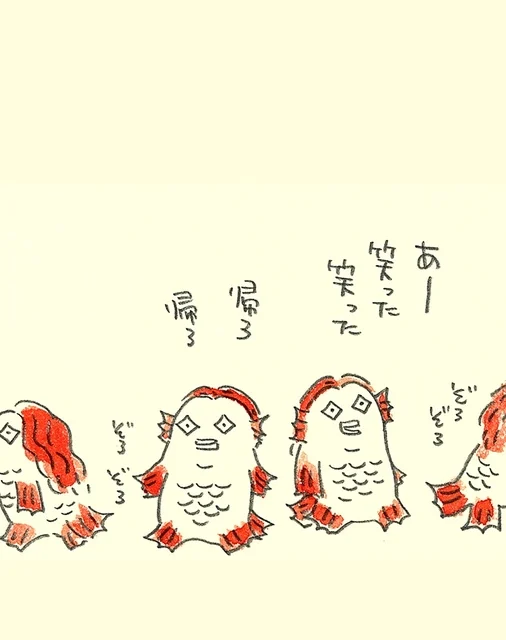 あー
笑った
笑った
帰ろ
帰ろ
ぞろ
ぞろ
ぞろ
ぞろ